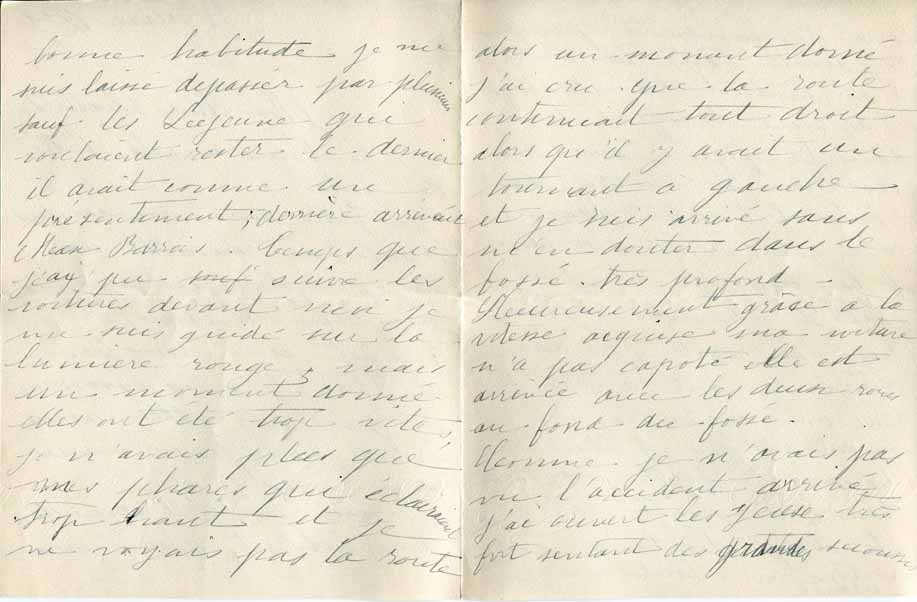 bonne habitude je me
suis laissé depasser par plusieurs
sauf les Lejeune qui
voulaient rester le dernier
il avait comme un
présentement; derrière arrivait
Barrois. que
j'ay pu suivre les
voitures devant moi je
me suis guidé sur la
lumiere rouge, mais
un moment donné
elles ont été trop vites,
je n'avais plus que
mes phares qui éclairaient
trop haut et je
ne voyais pas la route
alors un moment donné
j'ai cru que la route
continuait tout droit
alors qu'il y avait un
tournant à gauche
et je suis arrivé sans
m'en douter dans le
fossé très profond -
Heureusement grâce a la
vitesse acquise ma voiture
n'a pas capoté elle est
arrivée avec les deux roues
au fond du fossé.
Comme je n'avais pas
vu l'accident arrivé
j'ai ouvert les yeux très
fort sentant des grandes secousses